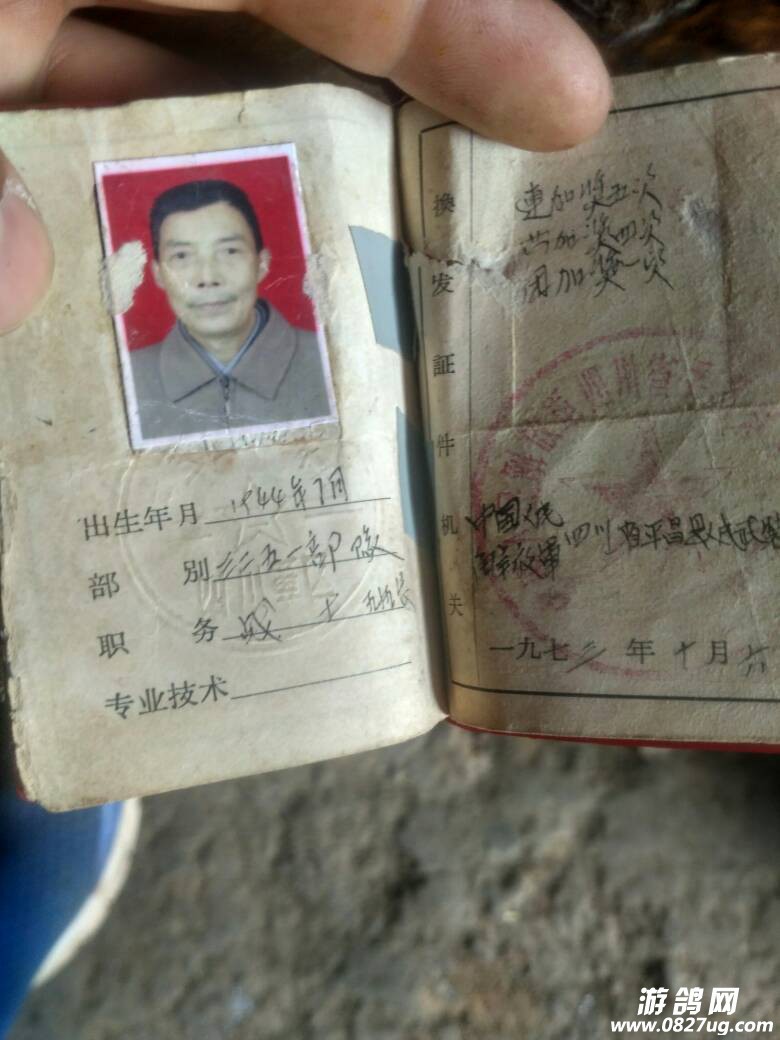 出生年月 1944年7月
部别 三三五一部队
职务 战士
专业技术
換发証件机关
連加奖五次
营加奖四次
团加奖一次
中国人民
解放军四川省平昌县人武部
一九七三年十月六
游鸽网
www.0827ug.com